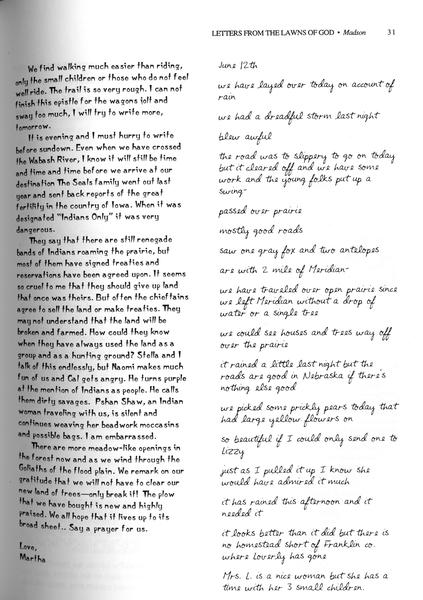 LETTERS FROM THE LAWNS OF GOD • Madson 31
We find walking much easier than riding,
only the small children or those who do not feel
well ride. The trail is so very rough. I can not
finish this epistle for the wagons jolt and
sway too much, I will try to write more,
tomorrow.
It is evening and I must hurry to write
before sundown. Even when we have crossed
the Wabash River, I know it will still be time
and time and time before we arrive at our
destination The Seals family went out last
year and sent back reports of the great
fertility in the country of Iowa. When it was
designated "Indians Only" it was very
dangerous.
They say that there are still renegade
bands of Indians roaming the prairie, but
most of them have signed treaties and
reservations have been agreed upon. It seems
so cruel to me that they should give up land
that once was theirs. But often the chieftains
agree to sell the land or make treaties. They
may not understand that the land will be
broken and farmed. How could they know
when they have always used the land as a
group and as a hunting ground? Stella and I
talk of this endlessly, but Naomi makes much
fun of us and Cal gets angry. He turns purple
at the mention of Indians as people. He calls
them dirty savages. Pshan Shaw, an Indian
woman traveling with us, is silent and
continues weaving her beadwork moccasins
and possible bags. I am embarrassed.
There are more meadow-like openings in
the forest now and as we wind through the
Goliaths of the flood plain. We remark on our
gratitude that we will not have to clear our
new land of trees—only break it! The plow
that we have bought is new and highly
praised. We all hope that it lives up to its
broad sheet.. Say a prayer for us.
Love,
Martha
June 12th
we have layed over today on account of
rain
we had a dreadful storm last night
blew awful
the road was to slippery to go on today
but it cleared off and we have some
work and the young folks put up a
swing-
passed over prairie
mostly good roads
saw one gray fox and two antelopes
are with 2 mile of Meridian-
we have traveled over open prairie since
we left Meridian without a drop of
water or a single tree
we could see houses and trees way off
over the prairie
it rained a little last night but the
roads are good in Nebraska if there's
nothing else good
we picked some prickly pears today that
had large yellow flowers on
so beautiful if I could only send one to
Lizzy
just as I pulled it up I know she
would have admired it much
it has rained this afternoon and it
needed it
it looks better than it did but there is
no homestead short of Franklin co.
where Loverly has gone
Mrs. L. is a nice woman but she has a
time with her 3 small children.